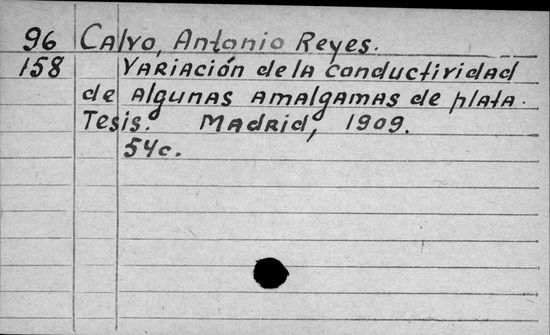 96 Calvo, Antonio Reyes.
158 Variación de la conductividad
de algunas amalgamas de plata.
Tesis. Madrid, 1909.
54c.